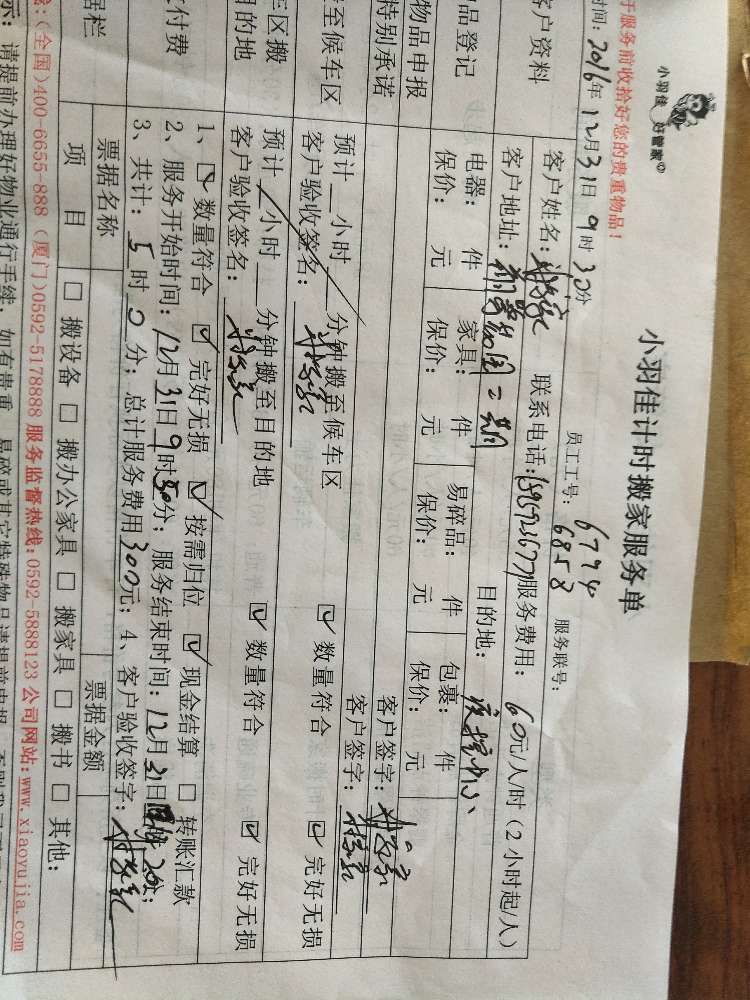 小羽佳 好管家
小羽佳计时搬家服务单
于服务前收拾好您的贵重物品！
员工工号：6794 6858 服务联号：
时间：2016年12月31日9时30分
客户资料
客户姓名： 联系电话： 服务费用：60元/人/时（2小时起/人）
客户地址： 二期 目的地：
品登记
电器： 件 家具： 件 易碎品： 件 包裹： 件
保价： 元 保价： 元 保价： 元 保价： 元
物品申报 客户签字：
特别承诺 客户签字：
至候车区
预计 小时 分钟搬至候车区 数量符合 完好无损
客户验收签名：
区搬
目的地
预计 小时 分钟搬至目的地 数量符合 完好无损
客户验收签名：
付费
1、 数量符合 完好无损 按需归位 现金结算 转账汇款
2、服务开始时间：12月31日9时30分；服务结束时间：12月31日
3、共计：5时0分；总计服务费用300元；4、客户验收签字：
据栏
票据名称 票据金额
项 目 搬设备 搬办公家具 搬家具 搬书 其他：
（全国）400-6655-888（厦门）0592-5178888 服务监督热线：0592-5888123 公司网站：www.xiaoyujia.com
示：请提前办理好物业通行手续，如有贵重、易碎或其它特殊物品请提前申报，否则